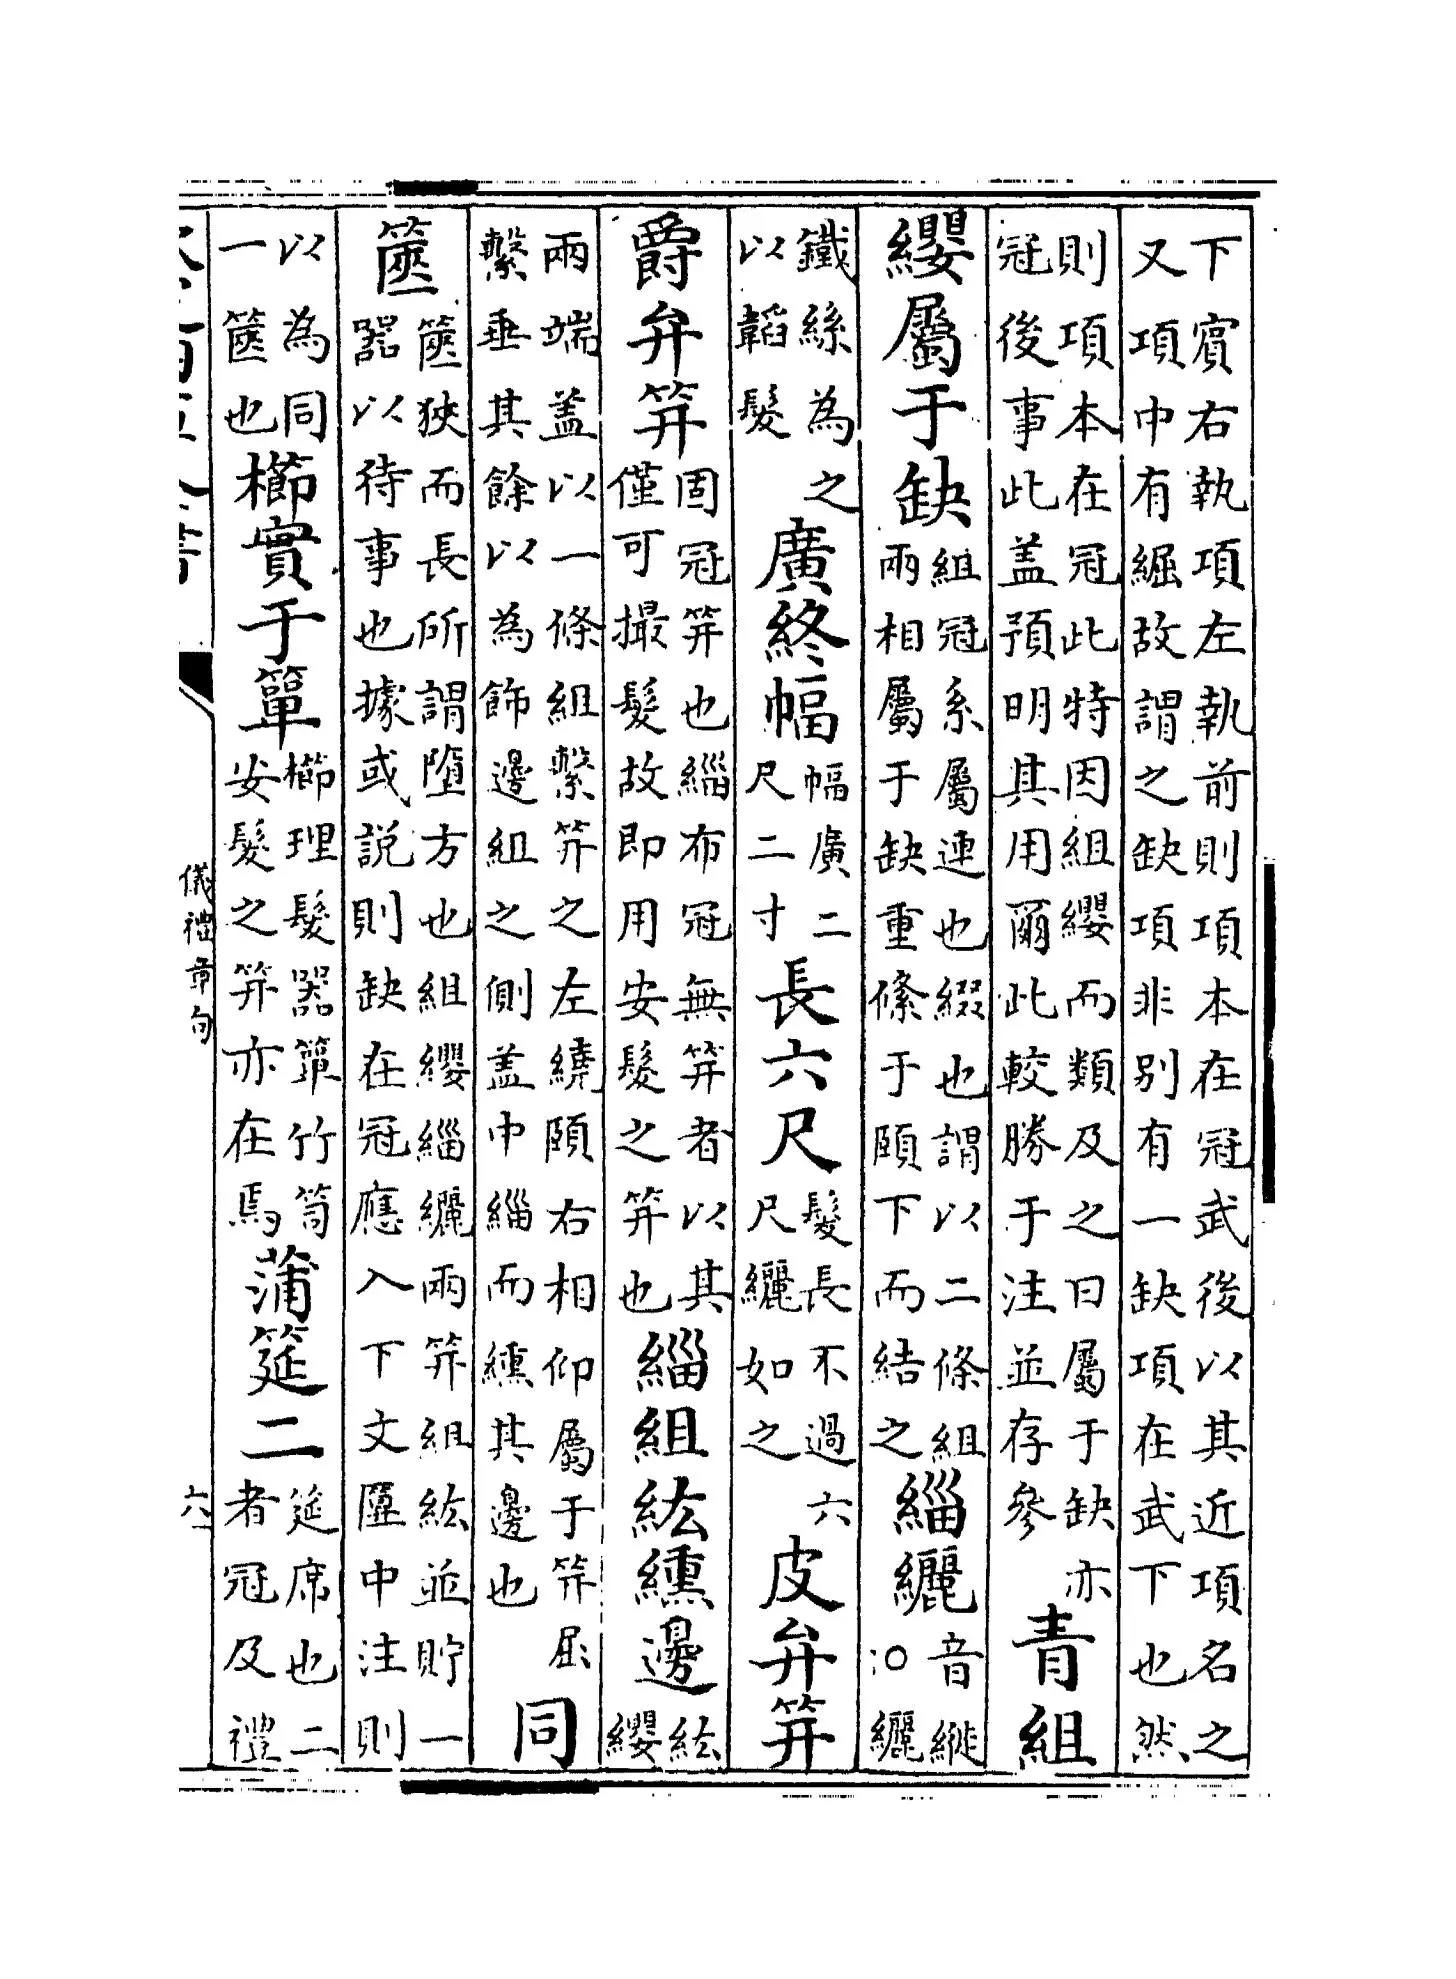 下賔右執項左執前則項本在冠武後以其近項名之
又項中有䋎故謂之缺項非别有一缺項在武下也然
則項本在冠此特因組纓而類及之曰屬于缺亦
冠後事此盖預明其用爾此較勝于注並存參
青組
纓屬于缺
組冠系屬連也綴也謂以二條組
兩相屬于缺重絛于頤下而結之
緇纚
音縰
○纚
鐵絲為之
以韜髮
廣終幅
幅廣二
尺二寸
長六尺
髮長不過六
尺纚如之
皮弁笄
爵弁笄
固冠笄也緇布冠無笄者以其
僅可撮髮故即用安髮之笄也
緇組紘纁邊
紘
纓
兩端盖以一條組繫笄之左繞頤右相仰屬于笄屈
繫垂其餘以為飾邊組之側盖中緇而纁其邊也
同
篋
篋狹而長所謂墮方也組纓緇纚兩笄組紘並貯一
器以待事也據或説則缺在冠應入下文匴中注則
以為同
一篋也
櫛實于簞
櫛理髮器簞竹笥
安髮之笄亦在焉
蒲筵二
筵席也二
者冠及禮
儀禮章句
六